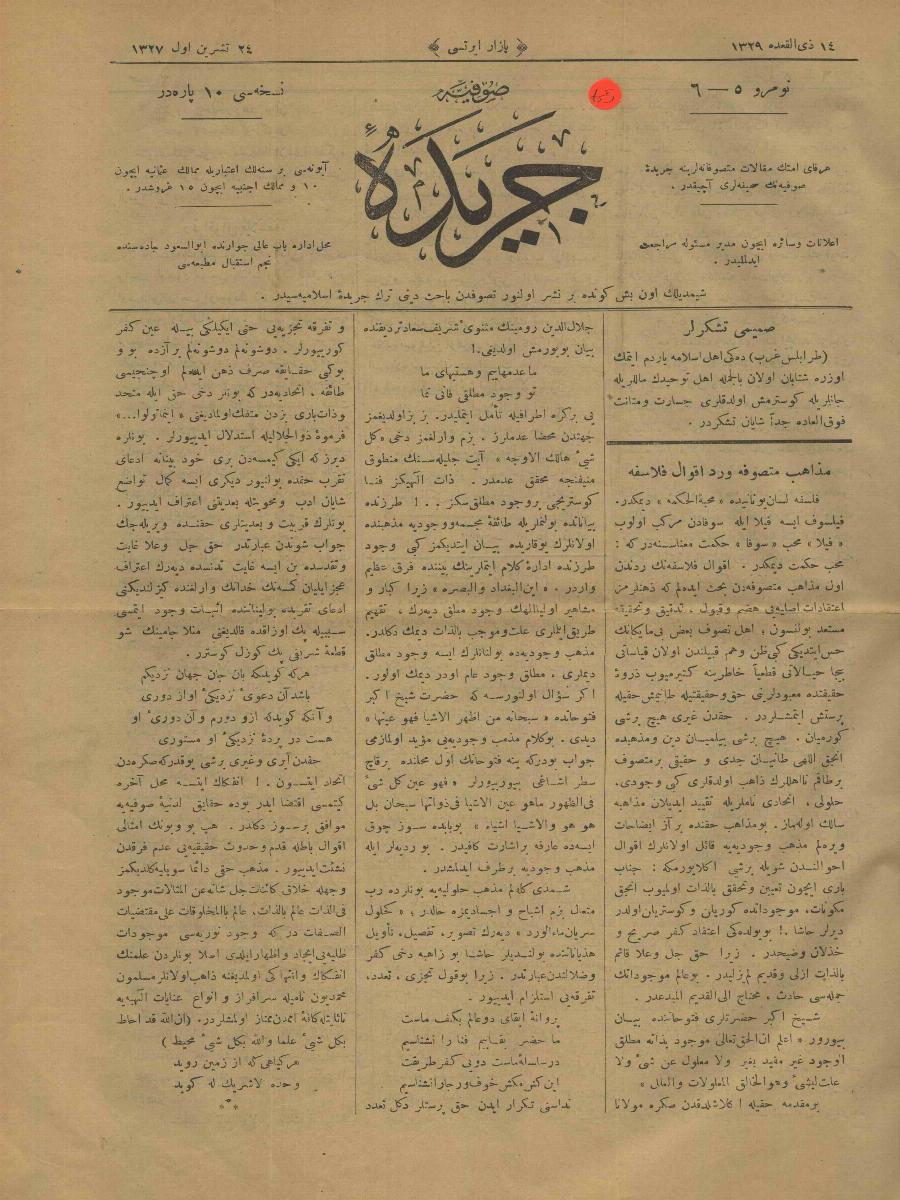 ١٤ ذی‌القعده ١٣٢٩
بازار ایرتسی
٢٤ تشرین اول ١٣٢٧
نومرو ٥ — ٦
صوفیه
جریدهٔ
نسخه‌سی ١٠ پاره‌در
هرفای امتك مقالات متصوفانه‌لرینه جریدهٔ
صوفیه‌نك صحیفه‌لری آچیقدر .
اعلانات وسائره ایچون مدیر مسئوله مراجعت
ایدلملیدر .
آبونه‌سی بر سنه‌لك اعتباریله ممالك عثمانیه ایچون
١٠ و ممالك اجنبیه ایچون ١٥ غروشدر .
محل اداره باب عالی جوارنده ابوالسعود جاده‌سنده
نجم استقبال مطبعه‌سی
شیمدیلك اون بش كونده بر نشر اولنور تصوفدن باحث دینی ترك جریدهٔ اسلامیه‌سیدر .
صمیمی تشكرلر
(طرابلس غرب) ده‌كی اهل اسلامه یاردم ایتمك
اوزره شتابان اولان بالجمله اهل توحیدك ماللریله
جانلریله كوسترمش اولدقلری جسارت ومتانت
فوق‌العاده جداً شایان تشكردر .
مذاهب متصوفه ورد اقوال فلاسفه
فلسفه لسان یونانیده « محبة‌الحكمه » دیمكدر.
فیلسوف ایسه فیلا ایله سوفادن مركب اولوب
« فیلا » محب « سوفا » حكمت معناسنه‌در كه :
محب حكمت دیمكدر . اقوال فلاسفه‌نك ردندن
اول مذاهب متصوفه‌دن بحث ایده‌لم كه ذهنلرمز
اعتقادات اصلیه‌یی هضم وقبول ، تدقیق وتحقیقه
مستعد بولنسون ؛ اهل تصوف بعض بی‌مایكانك
حس ایتدیكی كبی ظن وهم قبیلندن اولان قیاساتی
حقیقتده معبودلرینی حق وحقیقتیله طانیمش حقیله
پرستش ایتمشلردر . حقدن غیری هیچ برشی
كورمیان . هیچ برشی بیلمیان دین ومذهبده
انجق اللهی طانیان جدی و حقیقی برمتصوف
برطاقم نااهللرك ذاهب اولدقلری كبی وجودی،
حلولی ، اتحادی ناملریله تقیید ایدیلان مذاهبه
سالك اوله‌ماز . بومذاهب حقنده برآز ایضاحات
ویره‌لم مذهب وجودیه‌یه قائل اولانلرك اقوال
احوالندن شویله برشی اكلایورمكه : جناب
باری ایچون تعیین وتحقق بالذات اولمیوب انجق
مكونات، موجوداتده كوریلان وكوستریلان اولدر
دیرلر حاشا .! بویولده‌كی اعتقاد كفر صریح و
خذلان وضیحدر . زیرا حق جل وعلا قائم
بالذات ازلی وقدیم لم‌یزلیدر . بوعالم موجوداتك
جمله‌سی حادث ، محتاج الی‌القدیم المبدعدر .
شیخ اكبر حضرتلری فتوحاتنده بیان
بیورور « اعلم ان‌الحق‌تعالی موجود بذاته مطلق
اوجود غیر مقید بغیر ولا معلول عن شئ ولا
علت لشئ وهوالخالق المعلولات والعلل »
بومقدمه حقیله اكلاشلدقدن صكره مولانا
جلال‌الدین رومینك مثنوئ شریف سعادتردیفنده
بیان بویورمش اولدیغی.!
ما عدمهاییم وهستیهای ما
تو وجود مطلقی فانی نما
یی بركره اطرافیله تأمل ایتملیدر. بز بزاولدیغمز
جهتدن محضا عدملرز . بزم وارلغمز دخی «كل
شئ هالك الاوجهه » آیت جلیله‌سنك منطوق
منیفنجه محقق عدمدر . ذات الهیكز فنا
كوسترنجی بروجود مطلق‌سكز . . ! طرزنده
بیاناتده بولنملریله طائفهٔ مجسمه‌ووجودیه مذهبنده
اولانلرك بوقاریده بیان ایتدیكمز كبی وجود
طرزنده ادارهٔ كلام ایتملرینك بیننده فرق عظیم
واردر . « این‌البغداد والبصره » زیرا كبار و
مشاهیر اولیاءاللهك وجود مطلق دیه‌رك ، تفهیم
طریق ایتملری علت وموجب بالذات دیمك دكلدر.
مذهب وجودیه‌ده بولنانلرك ایسه وجود مطلق
دیملری . مطلق وجود عام اودر دیمك اولور.
اكر سؤال اولنورسه كه حضرت شیخ اكبر
فتوحاتده « سبحانه من اظهر الاشیا فهو عینها »
دیدی . بوكلام مذهب وجودیه‌یی مؤید اولمازمی
جواب بودركه ینه فتوحاتك اول محلنده برقاچ
سطر اشاغی بیورییورلر « فهو عین كل شئ
فی‌الظهور ماهو عین الاشیا فی‌ذواتها سبحان بل
هو هو والاشیا اشیاء » بوبابده سوز چوق
ایسه‌ده عارفه براشارت كافیدر . بو ردیه‌لر ایله
مذهب وجودیه برطرف ایدلمشدر.
شمدی كله‌لم مذهب حلولیه‌یه بونلرده رب
متعال بزم اشباح و اجسادیمزه حالدر ؛ « كحلول
سریان ماءالورد » دیه‌رك تصویر، تفصیل، تأویل
هذیاناتنده بولنیدیلر حاشا بو ذاهبه دخی كفر
وضلالتدن عبارتدر . زیرا بوقول تجزی ، تعدد،
تفرقه‌یی استلزام ایدییور .
پروانهٔ ابقای دوعالم بكف ماست
ما حضر بقاییم فنا را نشناسیم
درساحهٔ ماست دویی كفر طریقت
این كش مكش خوف ورجارا نشناسیم
نداسنی تكرار ایدن حق پرستلر دكل تعدد
و تفرقه تجزیه‌یی حتی ایكیلكی بیله عین كفر
كورییورلر . دوشونه‌لم دوشونه‌لم برآزده بو و
بوكبی حقایقه صرف ذهن ایله‌لم اوچنجیسی
طائفهٔ ، اتحادیه‌در كه بونلر دخی حق ایله متحد
وذات باری بزدن منفك اولمادیغنی « اینما تولوا...»
فرمودهٔ ذوالجلالیله استدلال ایدییورلر . بونلره
دیرز كه ایكی كیمسه‌دن بری خود بینانه ادعای
تقرب حقده بولنیور دیكری ایسه كمال تواضع
شایان ادب ومحویتله بعدیتنی اعتراف ایدییور .
بونلرك قربیت و بعدیتلری حقنده ویریله‌جك
جواب شوندن عبارتدر حق جل وعلا غایت
وتقدسده بن ایسه غایت تدنسده دیه‌رك اعتراف
عجز ایلیان كمسه‌نك خدانك وارلغنده كزلندیكنی
ادعای تقربده بولینانلنده اثبات وجود ایتمسی
سببیله پك اوزاقده قالدیغنی منلا جامینك شو
قطعهٔ شریفی پك كوزل كوسترر .
هركه كویدكه بان جان جهان نزدیكم
باشد آن دعوئ نزدیكئ اواز دوری
و آنكه كویدكه ازو دورم وآن دوری او
هست در پردهٔ نزدیكئ او مستوری
حقدن آیری وغیری برشی یوقدركه صكره‌دن
اتحاد ایتسون . ! انفكاك ایتسه محل آخره
كیتمسی اقتضا ایدر بوده حقایق لدنیهٔ صوفیه‌یه
موافق برسوز دكلدر . هپ بو وبونك امثالی
اقوال باطله قدم وحدوث حقیقیه‌یی عدم فرقدن
نشئت ایدییور . مذهب حق دائما سویله‌یه‌كلدیكمز
وجهله خلاق كائنات جل شانه عن المثالات موجود
فی‌الذات عالم بالذات، عالم بالمخلوقات علی مقتضیات
الصفات دركه وجود نوریه‌سی موجودات
ظلیه‌یی ایجاد واظهارایلدی اصلا بونلردن علمنك
انفكاك وانتهاكی اولمدیغنه ذاهب اولانلر مسلمون
محمدیون نامیله سرافراز و انواع عنایات الهیه‌یه
نائلیتله كافهٔ امم‌دن ممتاز اولمشلردر. (ان‌الله قد احاط
بكل شئ علما والله بكل شئ محیط )
هركیاهی كه از زمین روید
وحده لاشریك له كوید